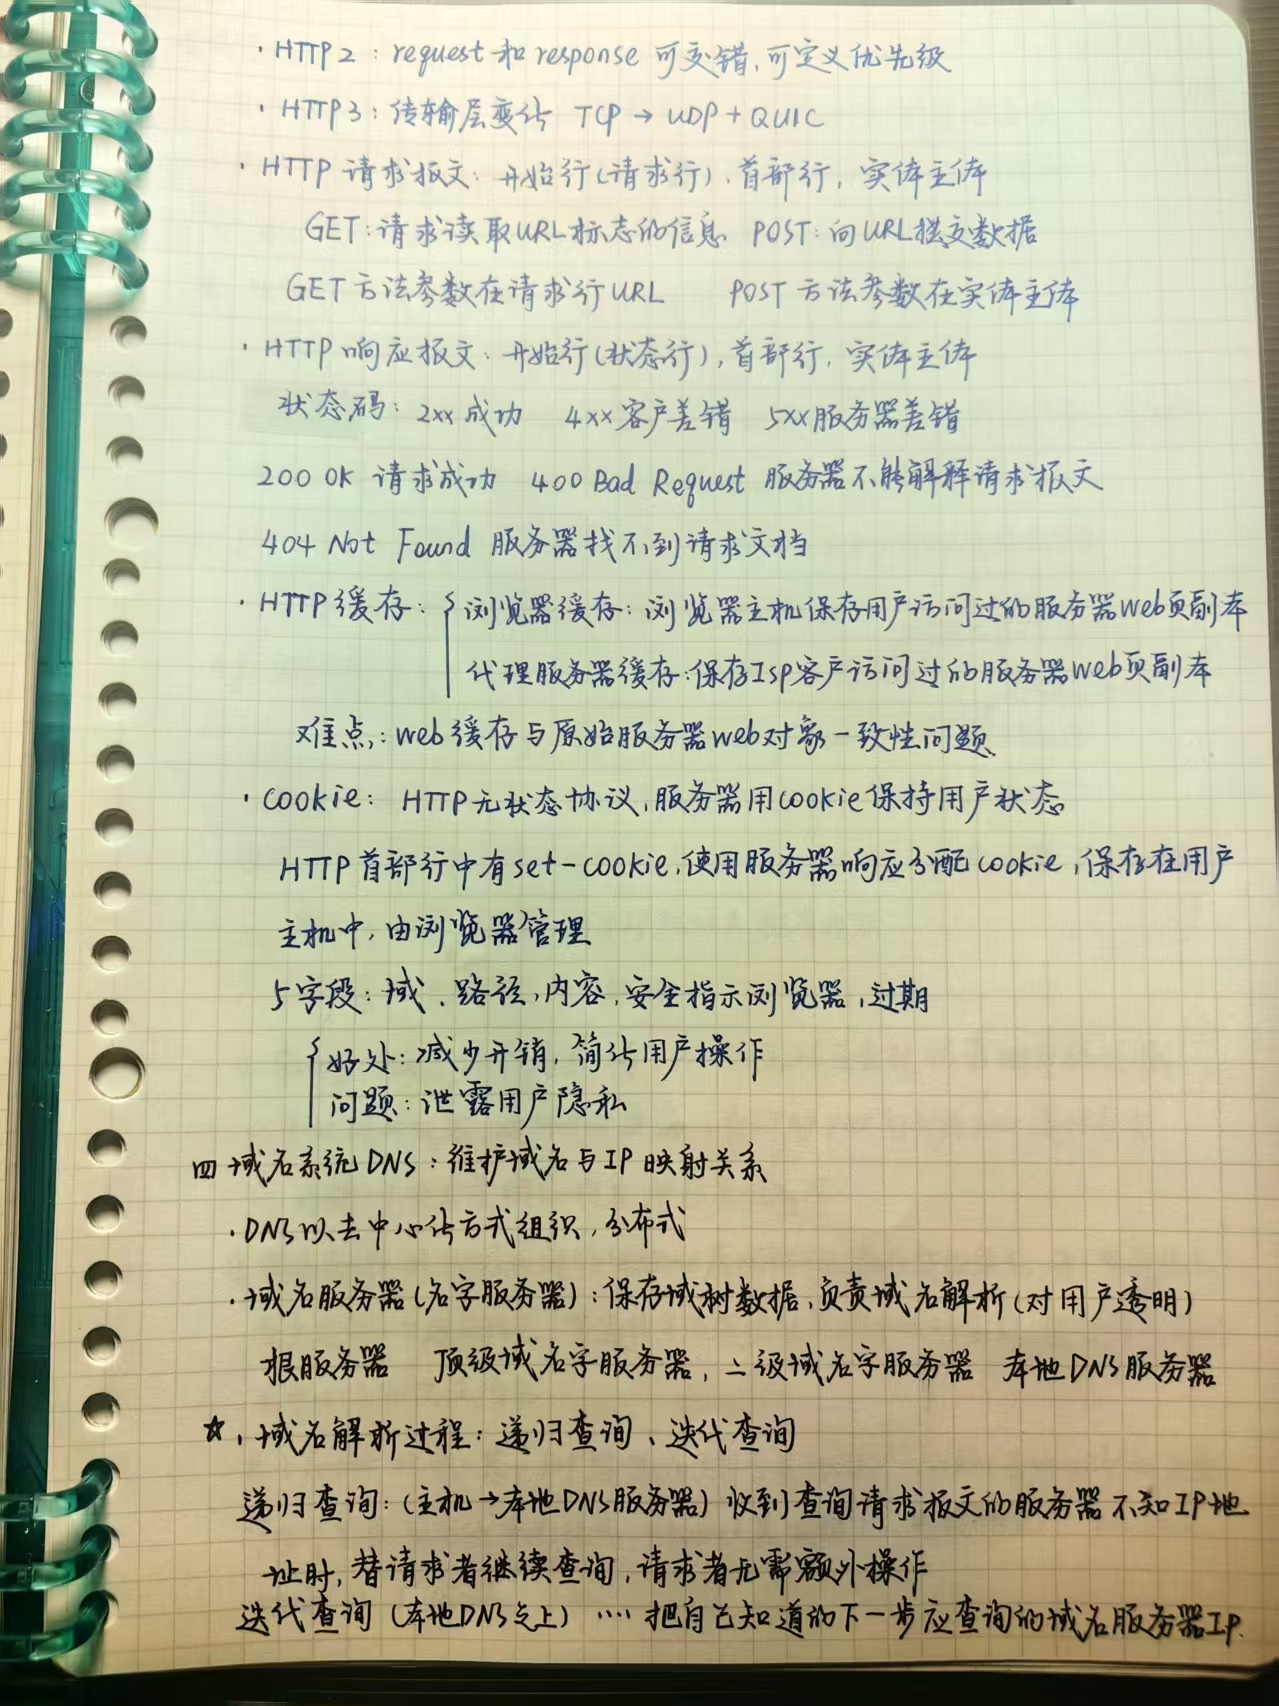 · HTTP2：request和response可交错，可定义优先级
· HTTP3：传输层变化 TCP → UDP + QUIC
· HTTP请求报文：开始行（请求行），首部行，实体主体
GET：请求读取URL标志的信息 POST：向URL提交数据
GET方法参数在请求行URL POST方法参数在实体主体
· HTTP响应报文：开始行（状态行），首部行，实体主体
状态码：2xx成功 4xx客户差错 5xx服务器差错
200 OK 请求成功 400 Bad Request 服务器不能解释请求报文
404 Not Found 服务器找不到请求文档
· HTTP缓存：{ 浏览器缓存：浏览器主机保存用户访问过的服务器web页副本
代理服务器缓存：保存ISP客户访问过的服务器web页副本
难点：web缓存与原始服务器web对象一致性问题
· cookie：HTTP无状态协议，服务器用cookie保持用户状态
HTTP首部行中有set-cookie，使用服务器响应分配cookie，保存在用户
主机中，由浏览器管理
5字段：域、路径，内容，安全指示浏览器，过期
{ 好处：减少开销，简化用户操作
问题：泄露用户隐私
四 域名系统DNS：维护域名与IP映射关系
· DNS以去中心化方式组织，分布式
· 域名服务器（名字服务器）：保存域树数据，负责域名解析（对用户透明）
根服务器 顶级域名字服务器，二级域名字服务器 本地DNS服务器
☆ · 域名解析过程：递归查询、迭代查询
递归查询：（主机→本地DNS服务器）收到查询请求报文的服务器不知IP地
址时，替请求者继续查询，请求者无需额外操作
迭代查询（本地DNS之上）…… 把自己知道的下一步应查询的域名服务器IP.